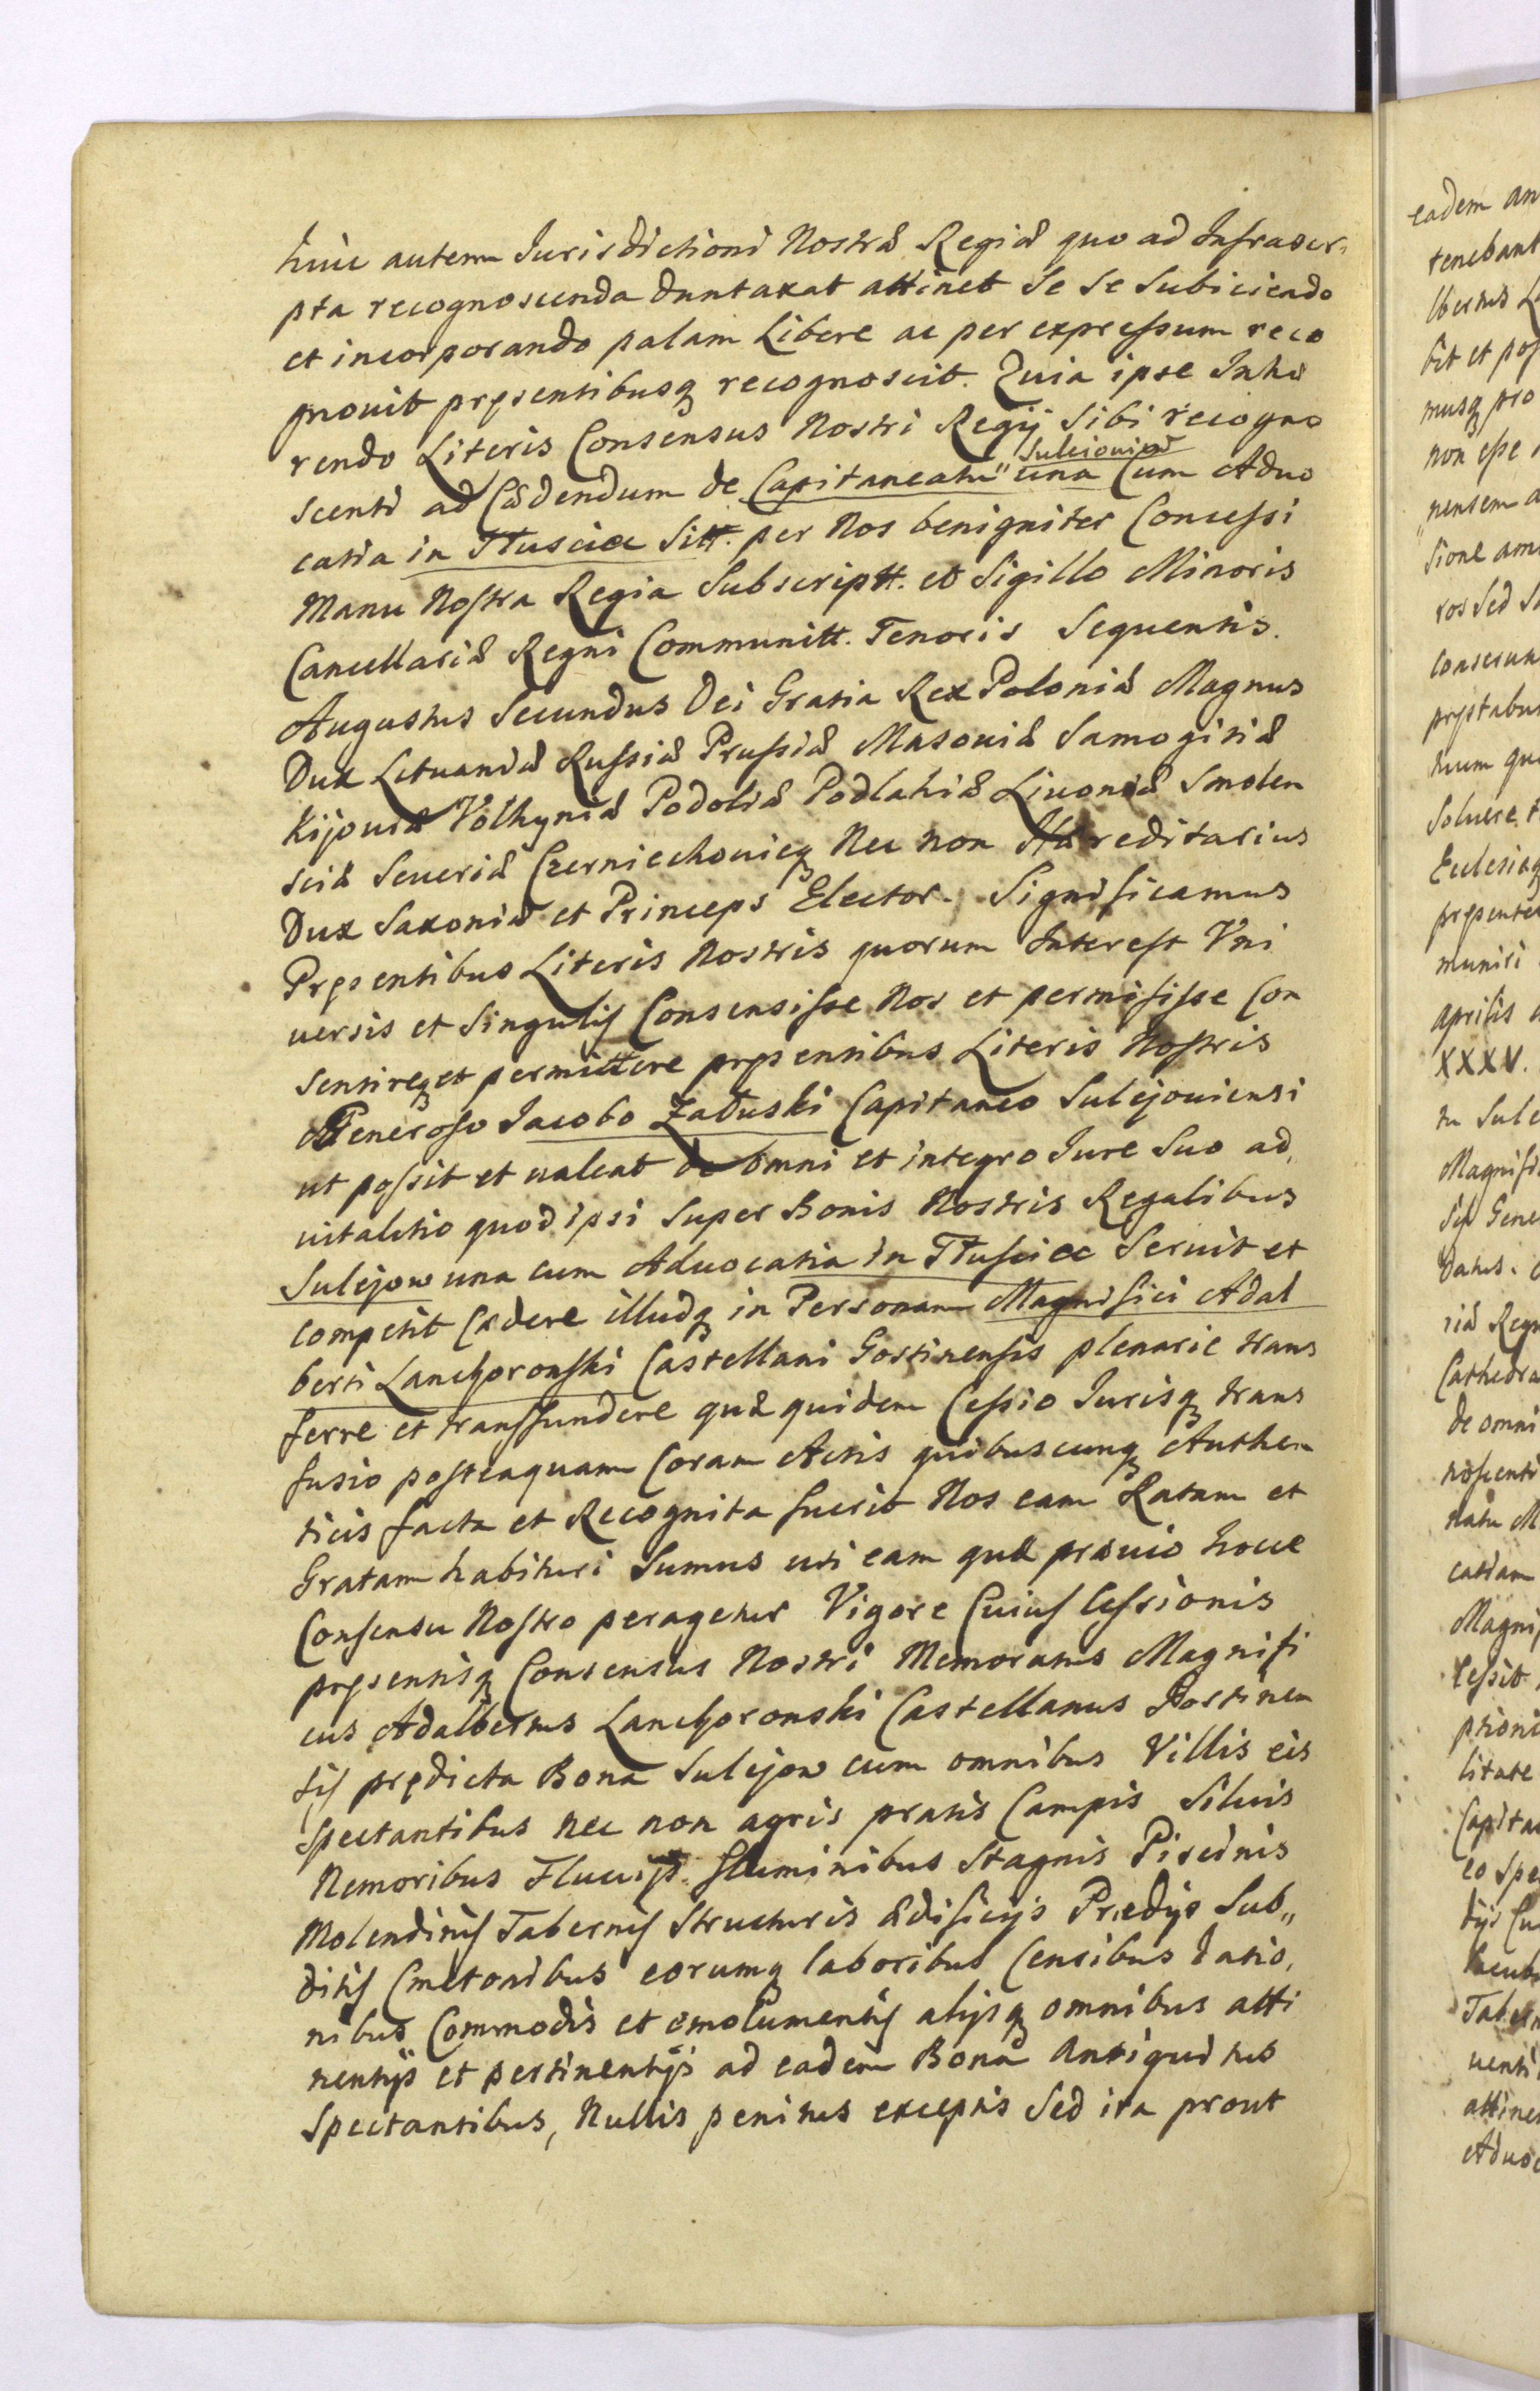 huic autem Jurisdictioni Nostræ Regiæ quo ad Infrascri,
pta recognoscenda duntaxat attinet Se Se Subiiciendo
et incorporando palam Libere ac per expressum reco
gnouit pręsentibusq recognoscit. Quia ipse Inhæ
rendo Literis Consensus Nostri Regij Sibi recogno
Suleiouien
scenti ad Cædendum de Capitaneatu" una Cum Aduo
catia in Tłuscice Sitt. per Nos benigniter Concessi
Manu Nostra Regia Subscriptt. et Sigillo Minoris
Cancellariæ Regni Communitt. Tenoris Sequentis.
Augustus Secundus Dei Gratia Rex Poloniæ Magnus
Dux Lituaniæ Russiæ Prussiæ Masouiæ Samogitiæ
Kijouiæ Volhyniæ Podoliæ Podlahiæ Liuoniæ Smolen
sciæ Seueriæ Czerniechouieq Nec non Hæreditarius
Dux Saxoniæ et Princeps Elector. Significamus
Pręsentibus Literis Nostris quorum Interest Vni
uersis et Singulis Consensisse Nos et permisisse Con
sentireq et permittere pręsentibus Literis Nostris
Generoso Jacobo Załuski Capitaneo Sulejouiensi
ut possit et ualeat de omni et integro Jure Suo ad,
uitalitio quod ipsi Super Bonis Nostris Regalibus
Sulejow una cum Aduocatia in Tłuscice Seruit et
competit Cædere illudq in Personam Magnifici Adal
berti Lanckoronski Castellani Gostinensis plenarie trans
ferre et transfundere quæ quidem Cessio Jurisq trans
fusio posteaquam Coram Actis quibuscunq Authen
ticis facta et Recognita fuerit Nos eam Ratam et
Gratam habituri Sumus uti eam quæ præuio hocce
Consensu Nostro peragetur Vigore Cuius Cessionis
pręsentisq Consensus Nostri Memoratus Magnifi
cus Adalbertus Lanckoronski Castellanus Gostinen
sis prędicta Bona Sulejow cum omnibus Villis eis
Spectantibus nec non agris pratis Campis Siluis
Nemoribus Fluuijs fluminibus Stagnis Piscinis
Molendinis Tabernis Structuris ædificijs Prædijs Sub"
ditis Cmetonibus eorumq laboribus Censibus datio,
nibus Commodis et emolumentis alijsq omnibus atti
nentijs et pertinentijs ad eadem Bona Antiquitus
Spectantibus, Nullis penitus exceptis Sed ita prout